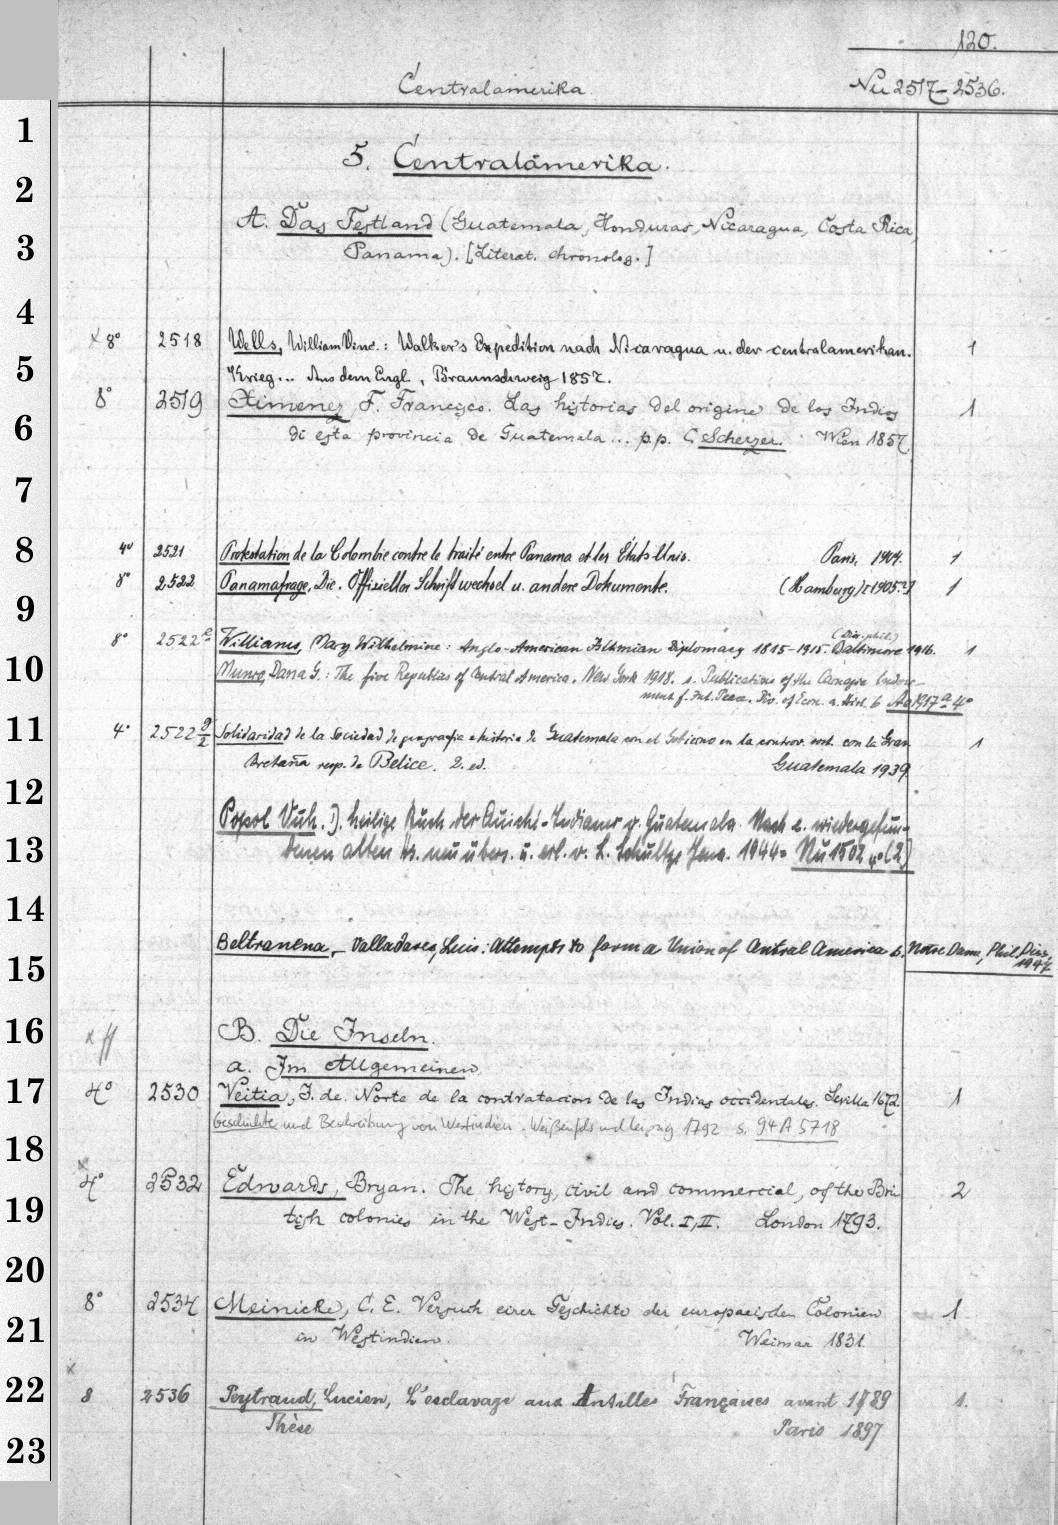 120.
Centralamerika.
Nu 2517-2536.
1
5. Centralamerika.
2
A. Das Festland (Guatemala, Honduras, Nicaragua, Costa Rica,
3
Panama). [Literat. chronolog.]
4
x 8° 2518 Wells, William Vinc.: Walker's Expedition nach Nicaragua u. der centralamerikan. 1
5
Krieg... Aus dem Engl. Braunschweig 1857.
8° 2519 Ximenez F. Francisco. Las historias del origine de los Indios 1
6
di esta provincia de Guatemala... p.p. C. Scherzer. Wien 1857
7
8
4° 2521 Protestation de la Colombie contre le traité entre Panama et les États-Unis. Paris, 1904. 1
8° 2522 Panamafrage, Die. Offizieller Schriftwechsel u. andere Dokumente. (Hamburg) [1905?] 1
9
(Diss. phil.)
8° 2522a Williams, Mary Wilhelmine: Anglo-American Isthmian Diplomacy 1815-1915. Baltimore 1916. 1
10
Munro, Dana G.: The five Republics of Central America. New York 1918. s. Publications of the Carnegie Endow-
ment f. Int. Peace. Div. of Econ. a. Hist. 6 Ao 1917a 4°
11
4° 2522 Solidaridad de la Sociedad de geografia e historia de Guatemala con el Gobierno en la controv. con la Gran 1
Bretaña resp. de Belice. 2. ed. Guatemala 1939
12
Popol Vuh. D. heilige Buch der Quiché-Indianer v. Guatemala. Nach e. wiedergefun-
13
denen alten Hs. neu übers. u. erl. v. L. Schultze Jena. 1944 = Nu 1502 4° (2)
14
Beltranena - Valladares, Luis: Attempts to form a Union of Central America s. Notre Dame, Phil. Diss.,
1947
15
16
x ff B. Die Inseln.
a. Im Allgemeinen.
17
4° 2530 Veitia, J. de. Norte de la contratacion de las Indias occidentales. Sevilla 1672. 1
Geschichte und Beschreibung von Westindien. Weißenfels und Leipzig 1792 s. 94 A 5718
18
x
4° 2532 Edwards, Bryan. The history, civil and commercial, of the Bri 2
19
tish colonies in the West-Indies. Vol. I, II. London 1793.
20
8° 2534 Meinicke, C. E. Versuch einer Geschichte der europaeischen Colonien 1
21
in Westindien. Weimar 1831.
x
22
8 2536 Peytraud, Lucien, L'esclavage aux Antilles Françaises avant 1789 1.
Thèse Paris 1897
23